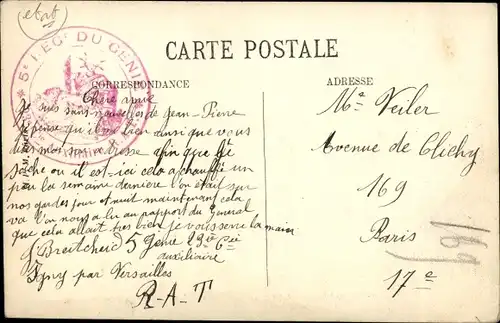 etat
5e REGt DU GENIE
CARTE POSTALE
CORRESPONDANCE
Chère amie
Je suis sans nouvelles de Jean-Pierre
je pense qu'il va bien ainsi que vous
dis moi son adresse afin que je
sache ou il est ici cela a chauffé un
peu la semaine dernière l'on était sur
nos gardes jour et nuit maintenant cela
va l'on nous a lu au rapport du General
que cela allait très bien je vous serre la main
Breitcheid 5 Genie 29e Cie
auxiliaire
Igny par Versailles
R-A-T
ADRESSE
Me Veiler
Avenue de Clichy
169
Paris
17e
169